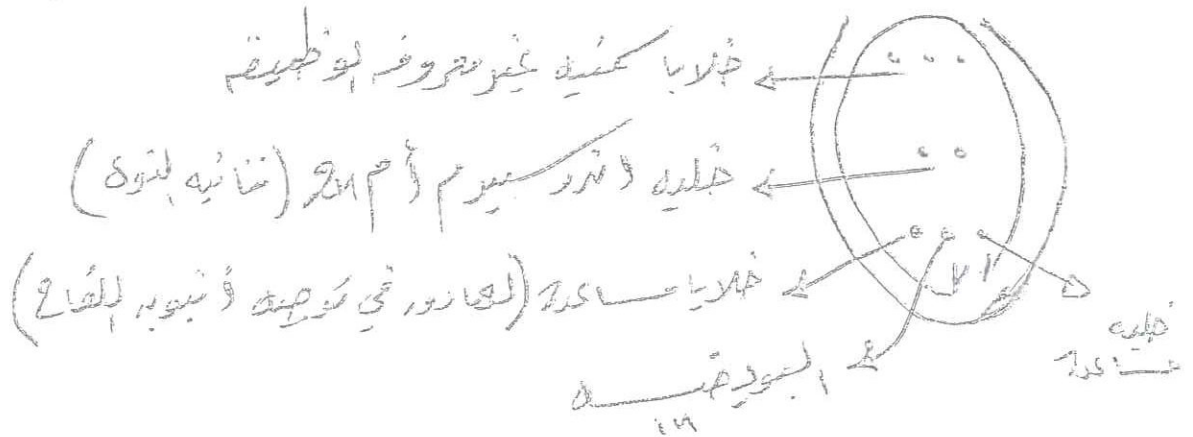 خلايا سمتيه غير معروفه الوظيفه
خليه اندوسبيرم أم 2n (ثنائيه النوى)
خلايا مساعدة (لها دور في توجيه أنبوب اللقاح)
خليه
مساعدة
البويضه
1n